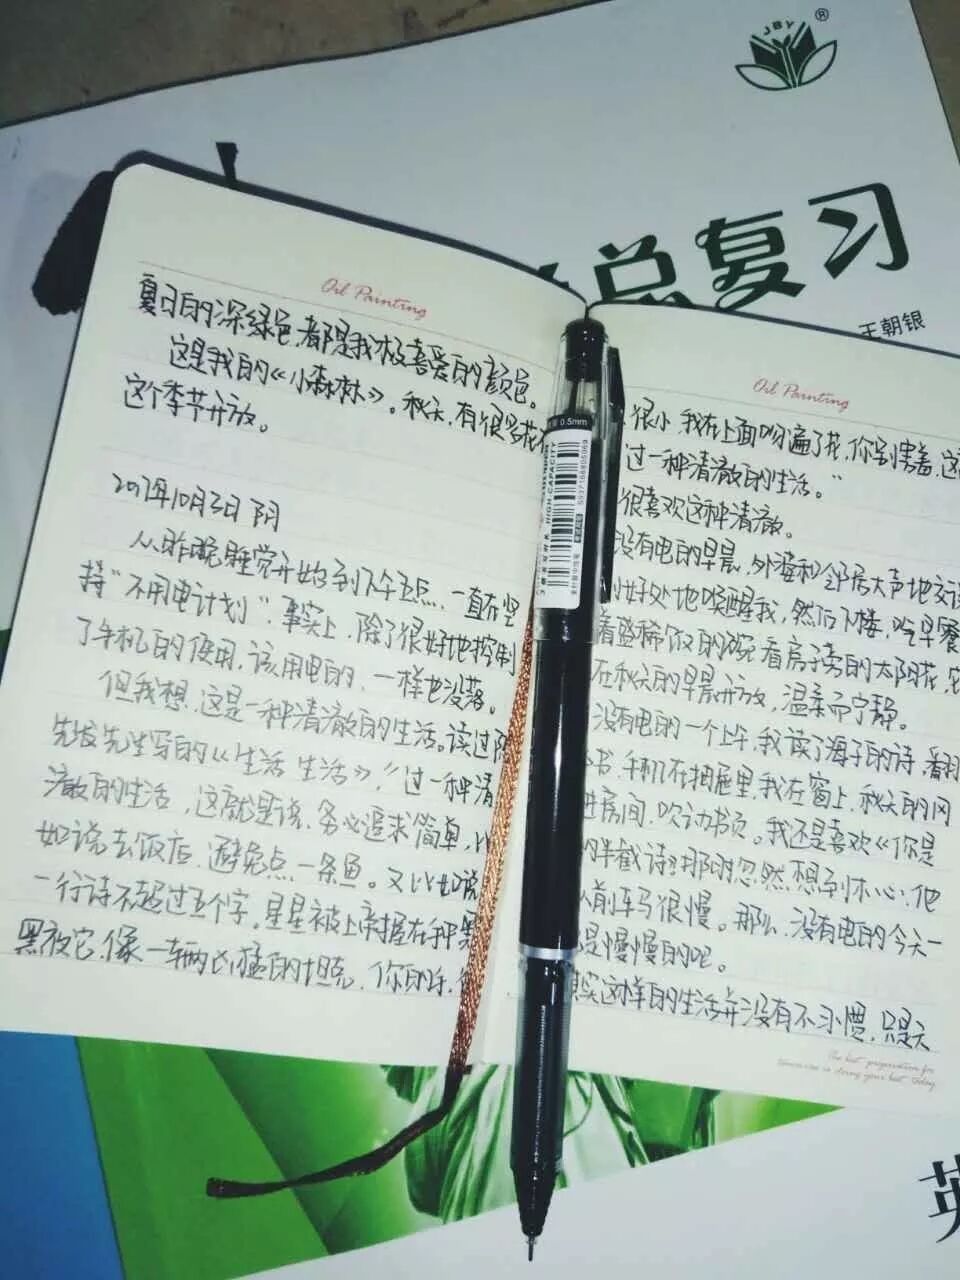 JBY
®
总复习
王朝银
Oil Painting
夏日的深绿色,都是我极喜爱的颜色。
这是我的《小森林》。秋天,有很多花在
这个季节开放。
2017年10月3日 阴
从昨晚睡觉开始到下午五点,一直在坚
持“不用电计划”,事实上,除了很好地控制
了手机的使用,该用电的,一样也没落。
但我想,这是一种清澈的生活。读过陈
先发先生写的《生活 生活》,“过一种清
澈的生活,这就是说,务必追求简单,比
如说去饭店,避免点一条鱼。又比如说
一行诗不超过五个字。星星被上帝握在种
黑夜它,像一辆凶猛的坦克。你的手,
Oil Painting
很小,我在上面吻遍了花,你别害羞,这
过一种清澈的生活。”
很喜欢这种清澈。
没有电的早晨,外婆和邻居大声地交谈
好处地唤醒我,然后下楼,吃早餐
着盛稀饭的碗看房子旁的太阳花,它
在秋天的早晨开放,温柔而宁静。
没有电的一个上午,我读了海子的诗,看
书,手机在抽屉里,我在窗上,秋天的风
进房间,吹动书页。我还是喜欢《你是
的半截诗》那么忽然想到木心:他
从前车马很慢。那么,没有电的今天一
是慢慢的吧。
其实这样的生活并没有不习惯,只是天
The best preparation for
tomorrow is doing your best today
0.5mm
HIGH-CAPACITY
英